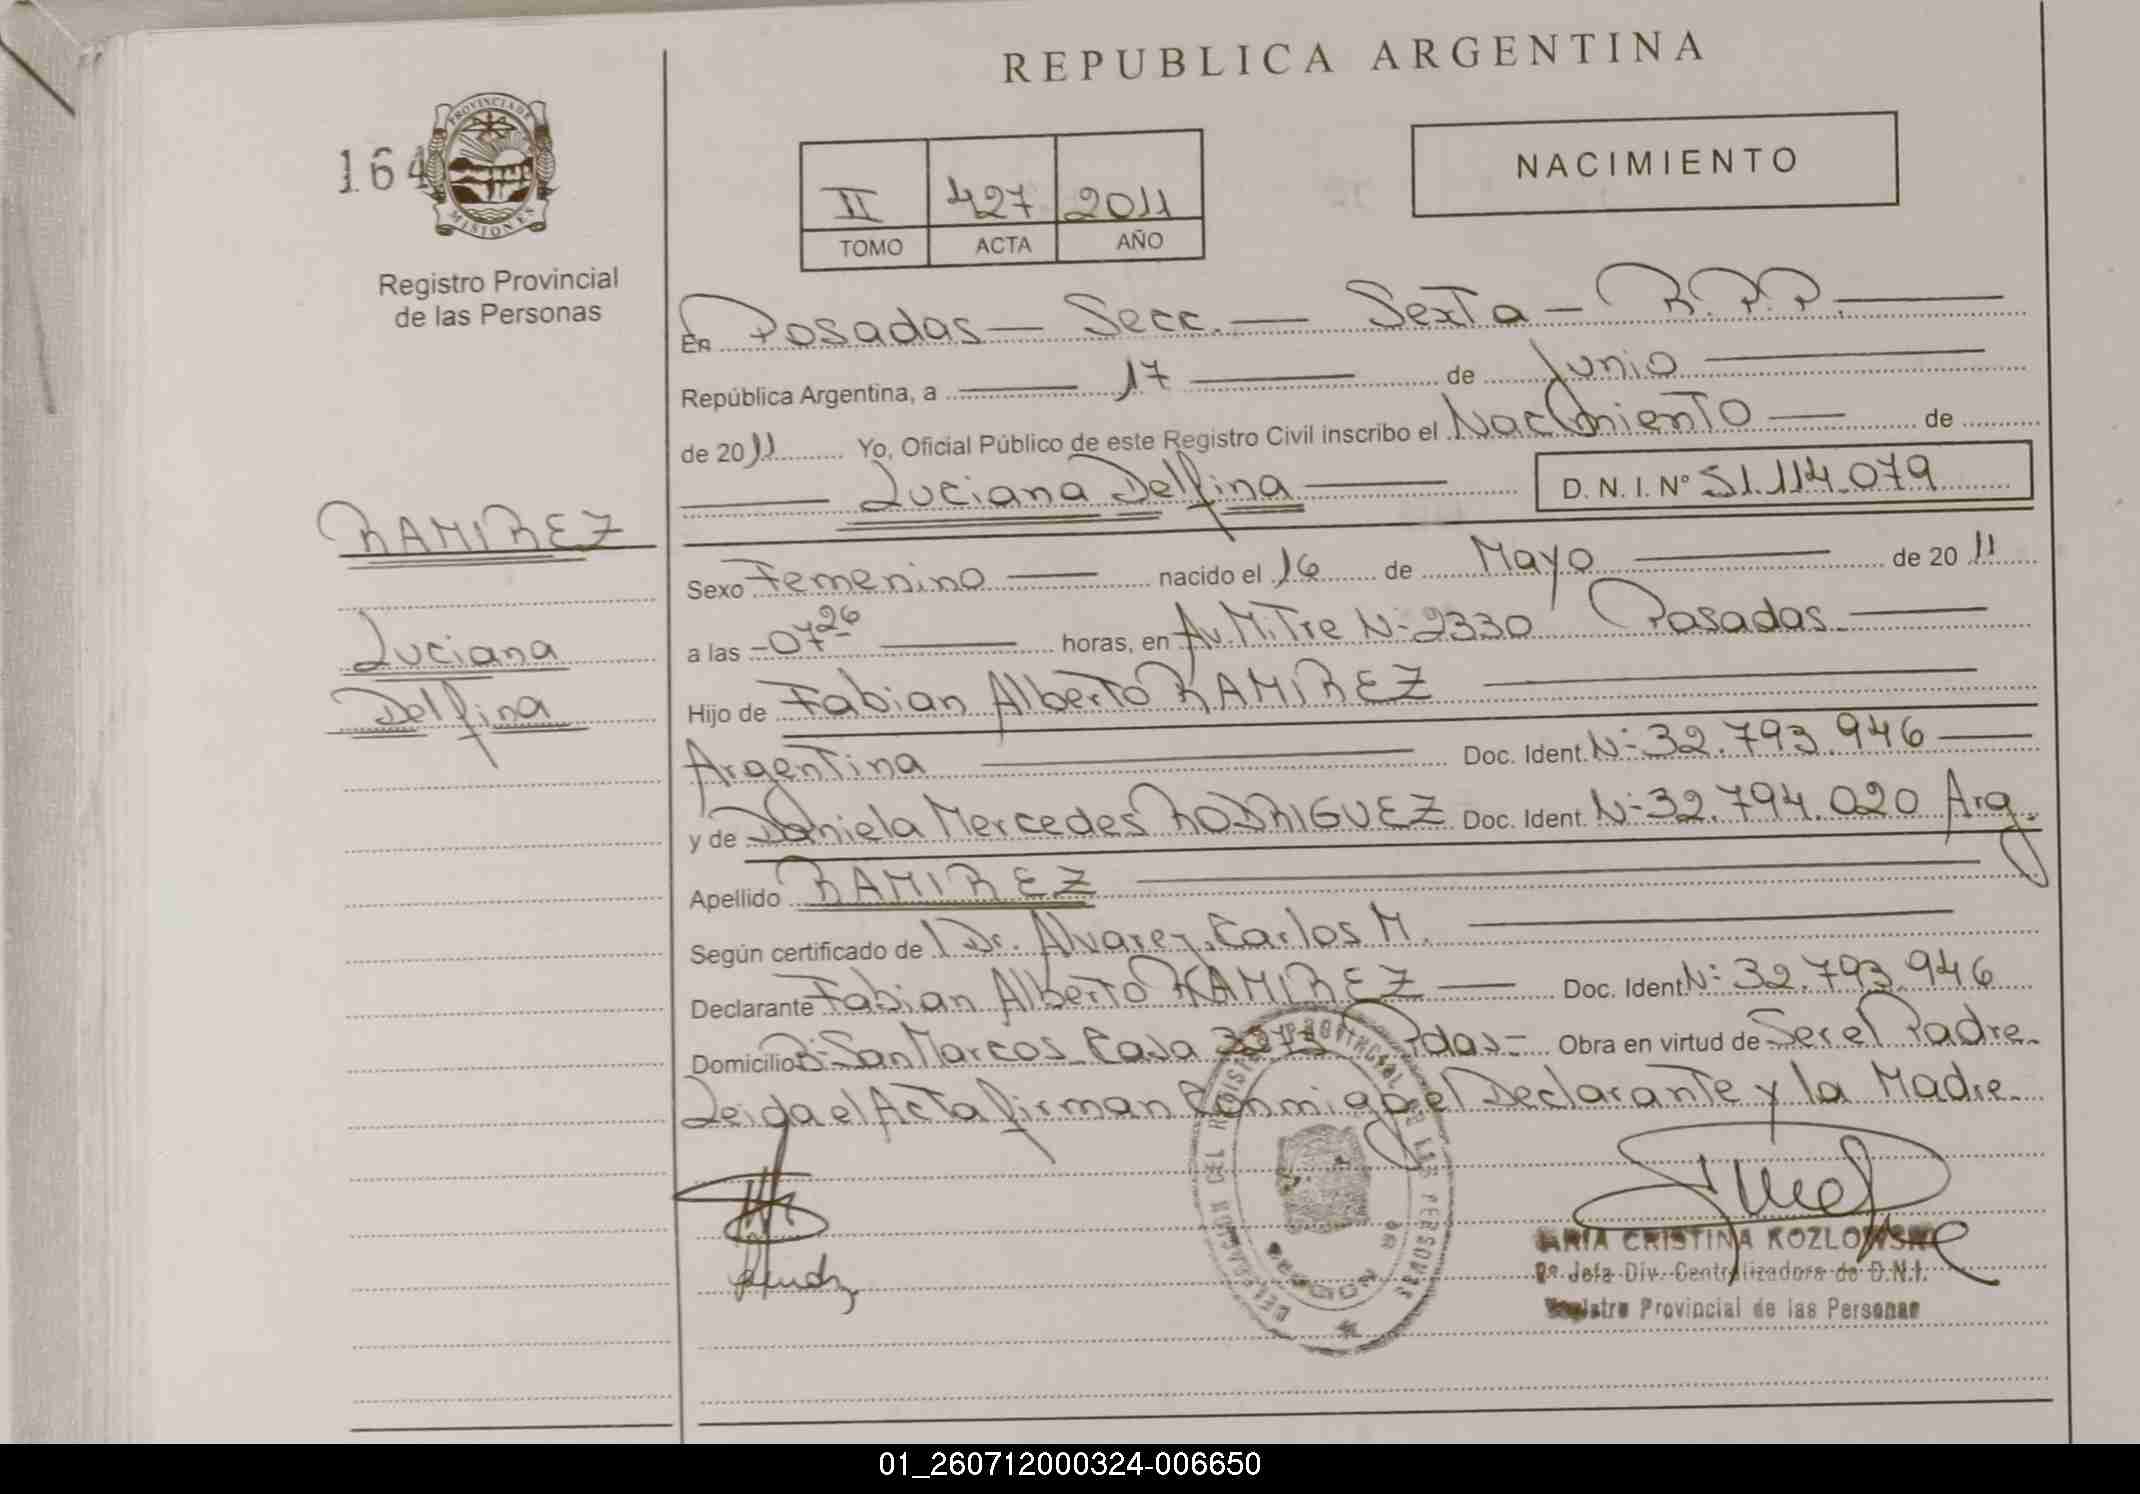 REPUBLICA ARGENTINA
164
PROVINCIA DE
MISIONES
Registro Provincial
de las Personas
II 427 2011
TOMO ACTA AÑO
NACIMIENTO
En Posadas — Secc. — Sexta — R.P.P.
República Argentina, a 17 de Junio
de 2011 Yo, Oficial Público de este Registro Civil inscribo el Nacimiento de
Luciana Delfina D.N.I. Nº 51.114.079
RAMIREZ
Luciana
Delfina
Sexo Femenino nacido el 16 de Mayo de 2011
a las -07 26 horas, en Av. Mitre Nº 2330 Posadas
Hijo de Fabian Alberto RAMIREZ
Argentina Doc. Ident. Nº 32.793.946
y de Daniela Mercedes RODRIGUEZ Doc. Ident. Nº 32.794.020 Arg.
Apellido RAMIREZ
Según certificado de Dr. Alvarez, Carlos M.
Declarante Fabian Alberto RAMIREZ Doc. Ident. Nº 32.793.946
Domicilio Bº San Marcos Casa Pdas - Obra en virtud de Ser el Padre.
Leida el Acta firman Conmigo, el Declarante y la Madre.
REGISTRO PROVINCIAL DE LAS PERSONAS
ARIA CRISTINA KOZLOWSKI
Jefa Div. Centralizadora de D.N.I.
Registro Provincial de las Personas
01_260712000324-006650